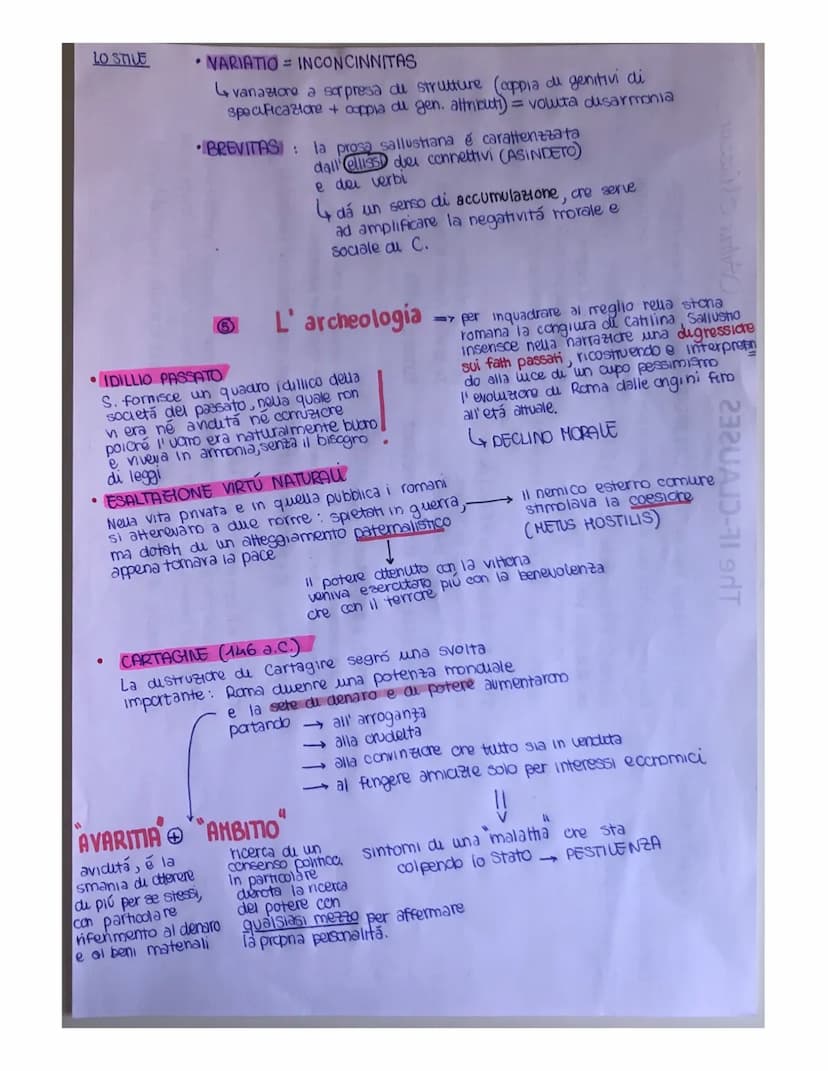 LO STILE
• VARIATIO = INCONCINNITAS
↳ variazione a sorpresa di strutture (coppia di genitivi di
specificazione + coppia di gen. attributi) = voluta disarmonia
• BREVITAS : la prosa sallustiana é caratterizzata
dall'ellissi dei connettivi (ASINDETO)
e dei verbi
↳ dá un senso di accumulazione, che serve
ad amplificare la negativitá morale e
sociale di C.
⑤ L'archeologia => per inquadrare al meglio nella storia
romana la congiura di Catilina, Sallustio
inserisce nella narrazione una digressione
sui fatti passati, ricostruendo e interpretan
do alla luce di un cupo pessimismo
l'evoluzione di Roma dalle origini fino
all'etá attuale.
↳ DECLINO MORALE
• IDILLIO PASSATO
S. fornisce un quadro idillico della
societá del passato, nella quale non
vi era né aviditá né corruzione
poiché l'uomo era naturalmente buono
e viveva in armonia, senza il bisogno
di leggi
• ESALTAZIONE VIRTÚ NATURALI
Nella vita privata e in quella pubblica i romani
si attenevano a due norme : spietati in guerra,
ma dotati di un atteggiamento paternalistico
appena tornava la pace
→ il nemico esterno comune
stimolava la coesione
(METUS HOSTILIS)
↓
il potere ottenuto con la vittoria
veniva esercitato piú con la benevolenza
che con il terrore
• CARTAGINE (146 a.C.)
La distruzione di Cartagine segnó una svolta
importante: Roma divenne una potenza mondiale
e la sete di denaro e di potere aumentarono
portando → all'arroganza
→ alla crudeltá
→ alla convinzione che tutto sia in vendita
→ al fingere amicizie solo per interessi economici
"AVARITIA" ⊕ "AMBITIO"
aviditá, é la
smania di ottenere
di piú per se stessi,
con particolare
riferimento al denaro
e ai beni materiali
ricerca di un
consenso politico.
In particolare
denota la ricerca
del potere con
qualsiasi mezzo per affermare
la propria personalitá.
sintomi di una "malattia" che sta
colpendo lo stato → PESTILENZA
The IF-CLAUSES